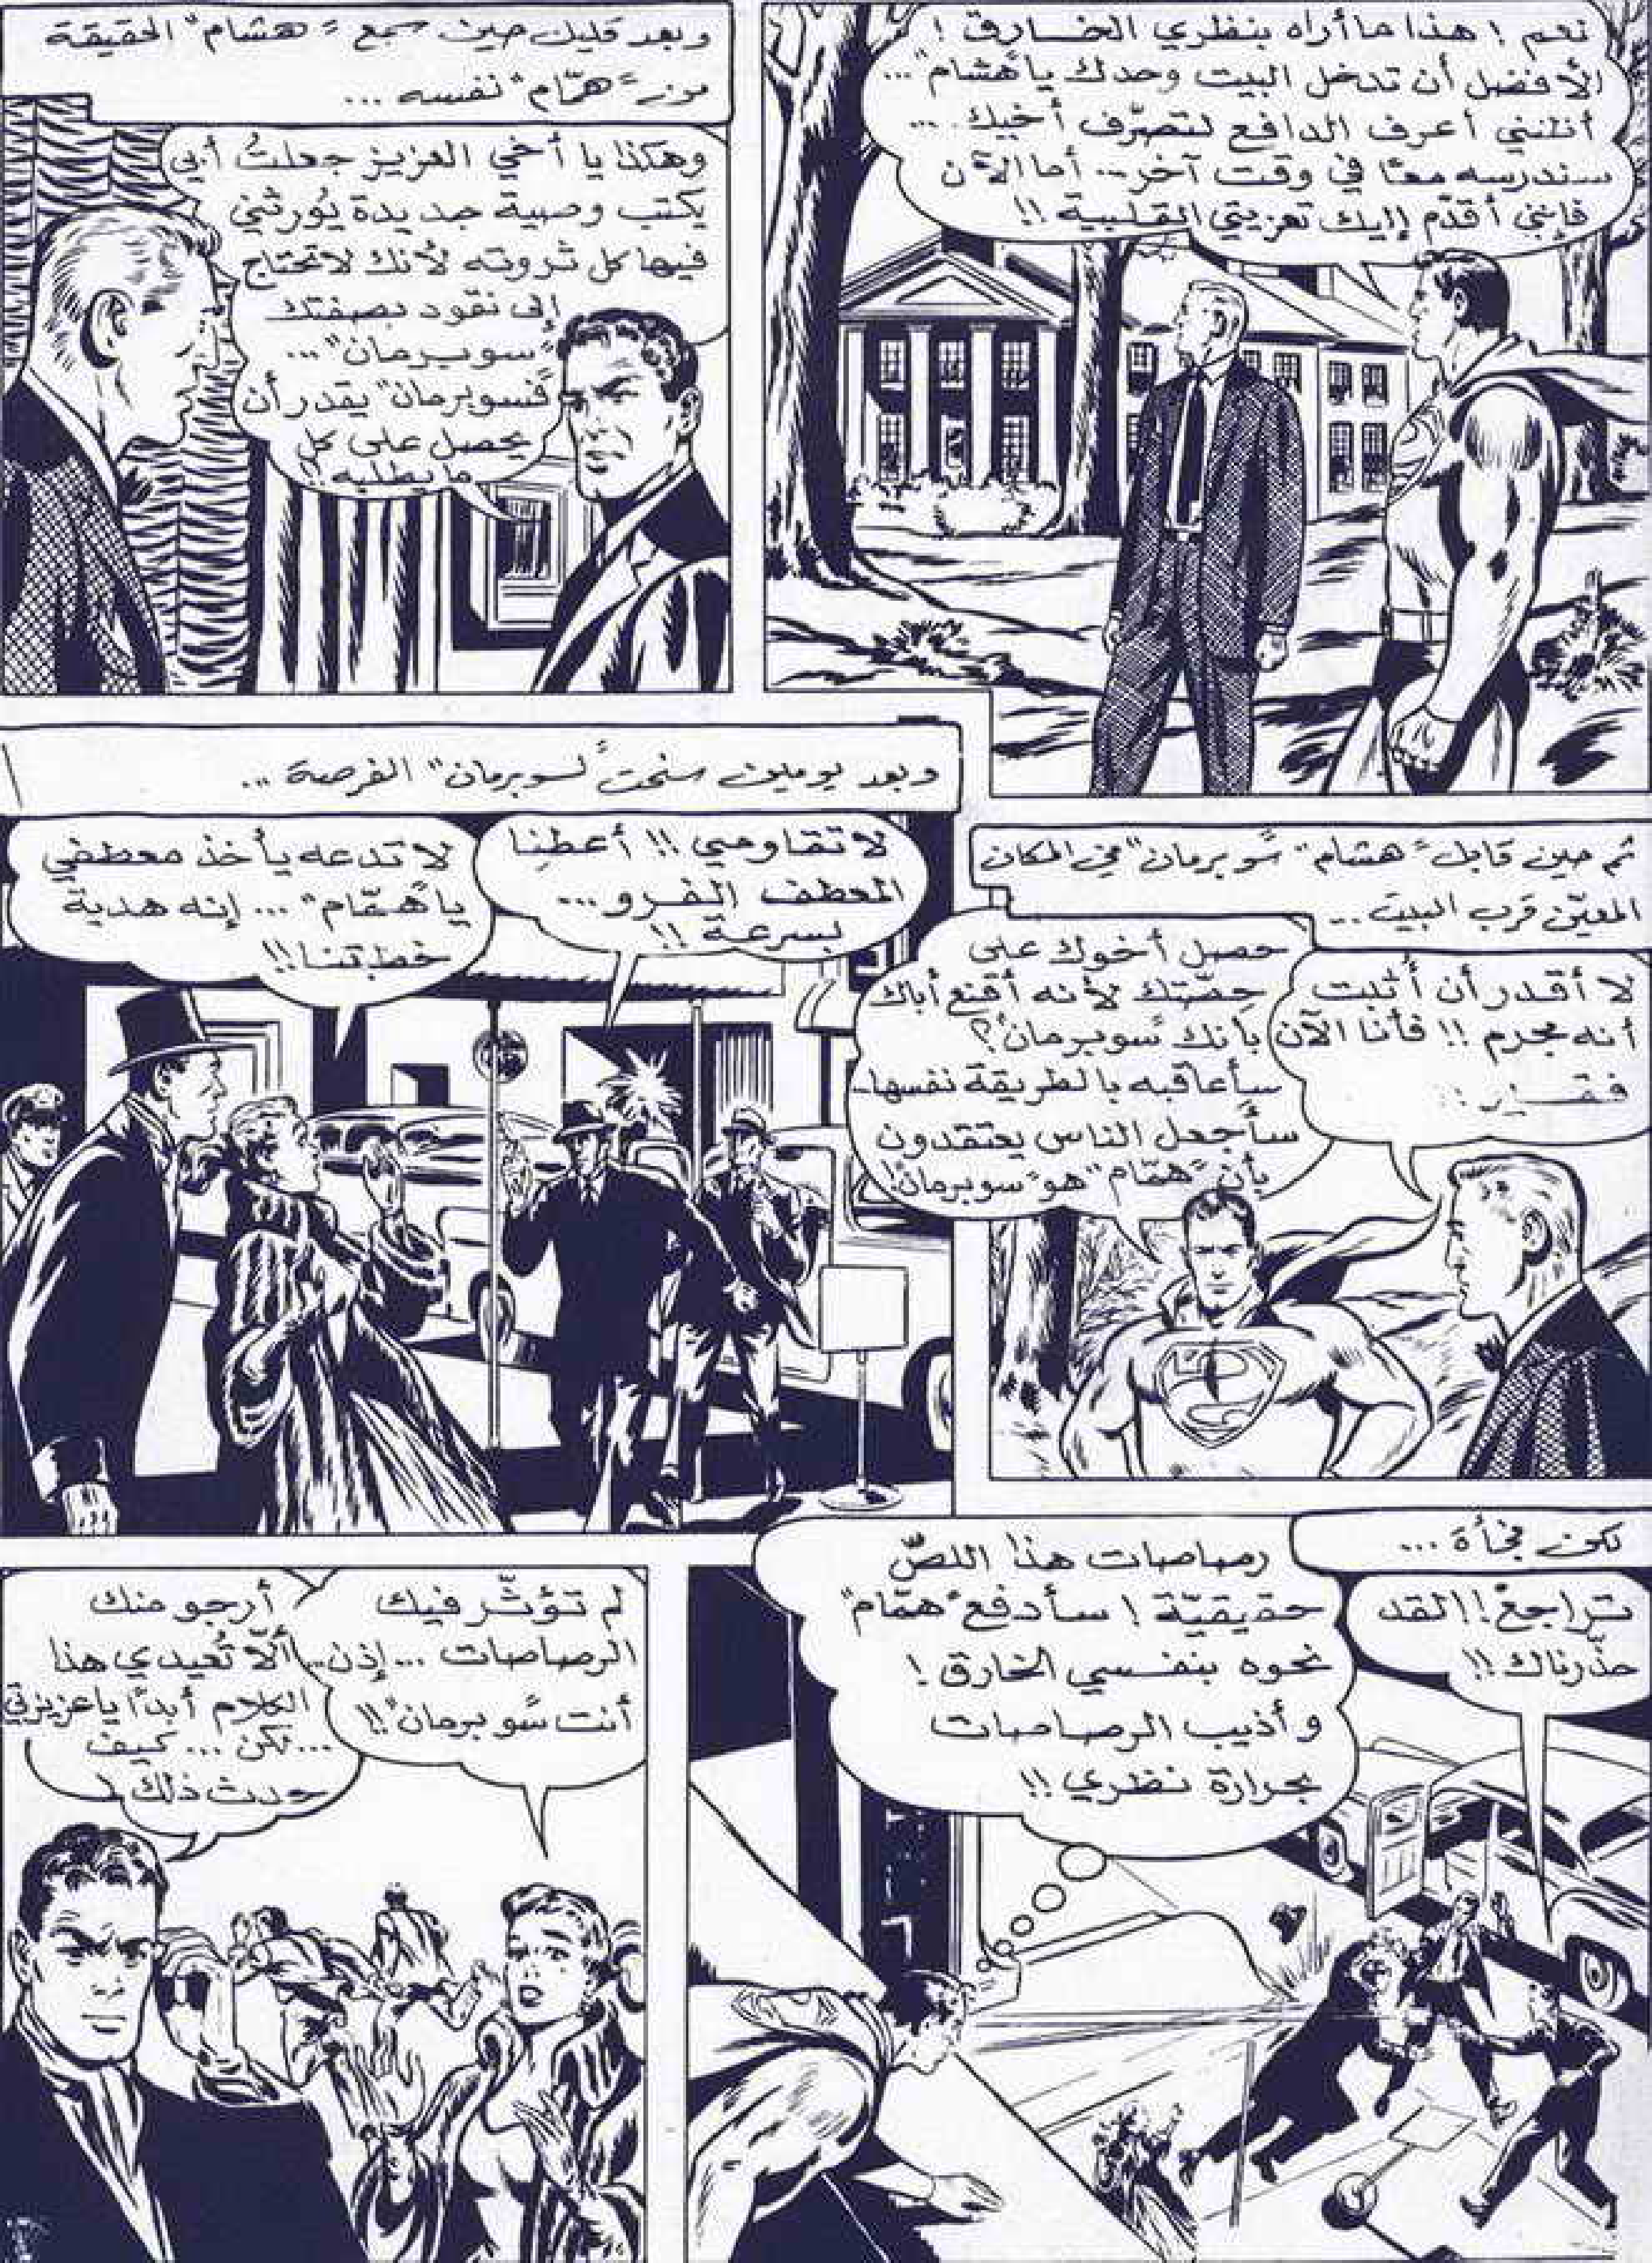 نعم ! هذا ما أراه بنظري الخارق !
الأفضل أن تدخل البيت وحدك يا "هشام" ...
أظنني أعرف الدافع لتصرّف أخيك ...
سندرسه معًا في وقت آخر ... أما الآن
فإنني أقدّم إليك تعزيتي القلبية !!
وبعد قليل حين سمع "هشام" الحقيقة
من "همّام" نفسه ...
وهكذا يا أخي العزيز جعلتُ أبي
يكتب وصية جديدة يُورثني
فيها كل ثروته لأنك لا تحتاج
إلى نقود بصفتك
"سوبرمان" ...
فـ"سوبرمان" يقدر أن
يحصل على كل
ما يطلبه !!
ثم حين قابل "هشام" "سوبرمان" في المكان
المعيّن قرب البيت ...
لا أقدر أن أُثبت
أنه مجرم !! فأنا الآن
فقير !!
حصل أخوك على
حصّتك لأنه أقنع أباك
بأنك "سوبرمان"؟
سأعاقبه بالطريقة نفسها..
سأجعل الناس يعتقدون
بأن "همّام" هو "سوبرمان"!
وبعد يومين سنحت لـ"سوبرمان" الفرصة ...
لا تقاومي !! أعطِنا
المعطف الفرو ...
بسرعة !!
لا تدعه يأخذ معطفي
يا "همّام" ... إنه هدية
خطبتنا !!
لكن فجأة ...
تراجع ! لقد
حذّرناك !!
رصاصات هذا اللصّ
حقيقيّة ! سأدفع "همّام"
نحوه بنفسي الخارق !
وأذيب الرصاصات
بحرارة نظري !!
لم تؤثّر فيك
الرصاصات ... إذن ...
أنت "سوبرمان" !!
أرجو منك
ألّا تُعيدي هذا
الكلام أبدًا يا عزيزتي
... لكن ... كيف
حدث ذلك ؟